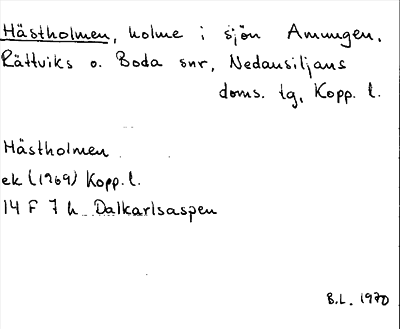 Hästholmen, holme i sjön Amungen,
Rättviks o. Boda snr, Nedansiljans
doms. tg, Kopp. l.
Hästholmen
ek (1969) Kopp. l.
14 F 7 h Dalkarlsaspen
B.L. 1970